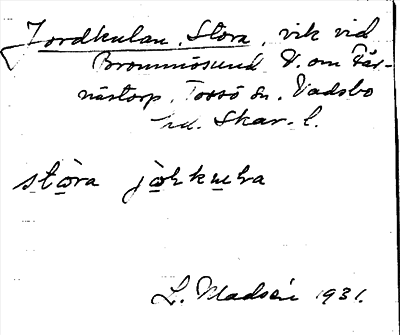 Jordkulan, Stora, vik vid
Brommösund V. om Får-
nästorp, Torsö sn. Vadsbo
hd. Skar. l.
stora jolkula
L. Madsén 1931.